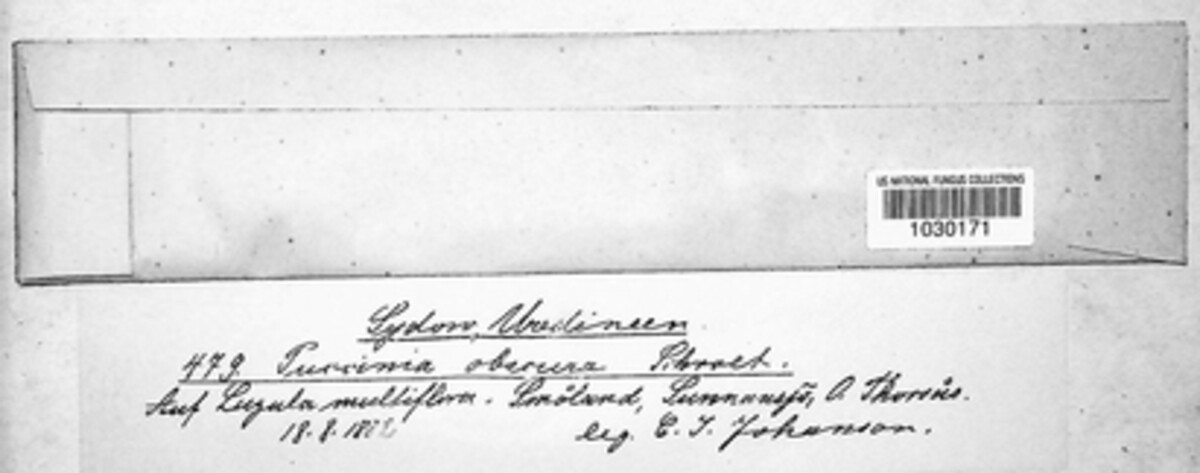 US NATIONAL FUNGUS COLLECTIONS
1030171
Sydow, Uredineen
479. Puccinia obscura Schroet.
Auf Luzula multiflora. Småland, Sunnansjö, O. Thorsås.
18. 8. 188
leg. C. J. Johanson.